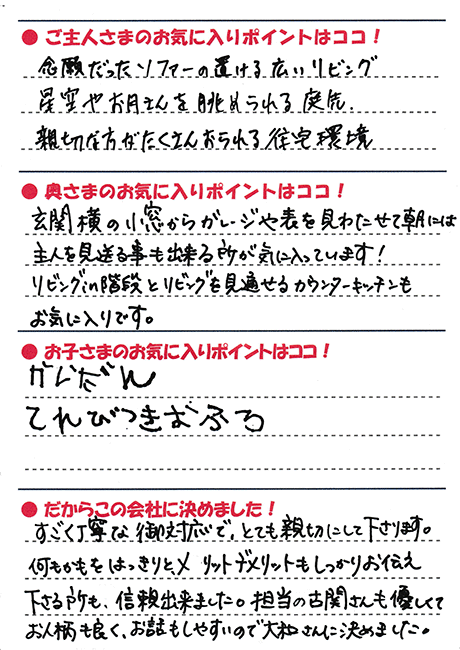 ● ご主人さまのお気に入りポイントはココ！
念願だったソファーの置ける広いリビング
星空やお月さんを眺められる庭先.
親切な方がたくさんおられる住宅環境
● 奥さまのお気に入りポイントはココ！
玄関横の小窓からガレージや表を見わたせて朝には
主人を見送る事も出来る所が気に入っています!
リビングin階段とリビングを見通せるカウンターキッチンも
お気に入りです。
● お子さまのお気に入りポイントはココ！
かいだん
てれびつきおふろ
● だからこの会社に決めました！
すごく丁寧な御対応で、とても親切にして下さります。
何もかもをはっきりと、メリットデメリットもしっかりお伝え
下さる所も、信頼出来ました。担当の古関さんも優しくて
お人柄も良く、お話もしやすいので大和さんに決めました。